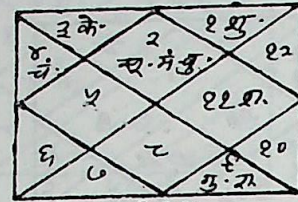 ३ के·
२
१ शु·
४
चं·
सू·मं·बु·
१२
५
११ श·
६
७
८
९
गु·रा·
१०